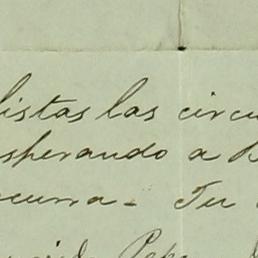 listas las circu
sperando a B
curra - Tu
Pepe